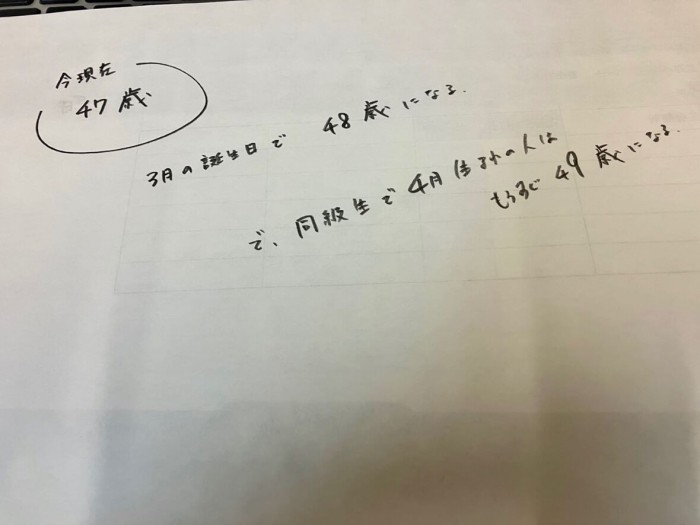 今現在
47歳
3月の誕生日で 48歳になる.
で、同級生で4月生まれの人は
もうすぐ49歳になる.